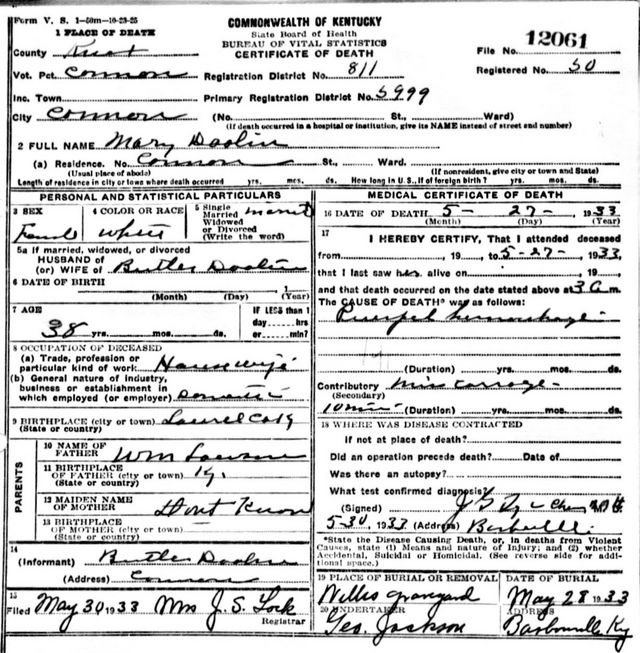 Form V. S. 1—50m—10-23-25
1 PLACE OF DEATH
COMMONWEALTH OF KENTUCKY
State Board of Health
BUREAU OF VITAL STATISTICS
CERTIFICATE OF DEATH
File No. 12061
Registered No. 50
County Knox
Vot. Pct. Cannon Registration District No. 811
Inc. Town Primary Registration District No. 5999
City Cannon (No. St., Ward)
(If death occurred in a hospital or institution, give its NAME instead of street end number)
2 FULL NAME Mary Doolin
(a) Residence. No. Cannon St., Ward.
(Usual place of abode) (If nonresident, give city or town and State)
Length of residence in city or town where death occurred yrs. mos. ds. How long in U. S., if of foreign birth? yrs. mos. ds.
PERSONAL AND STATISTICAL PARTICULARS
3 SEX 4 COLOR OR RACE 5 Single Married Widowed or Divorced (Write the word)
White
5a If married, widowed, or divorced
HUSBAND of
(or) WIFE of Butler Doolin
6 DATE OF BIRTH 1
(Month) (Day) (Year)
7 AGE IF LESS than 1
38 yrs. mos. ds. day hrs. or min.?
8 OCCUPATION OF DECEASED
(a) Trade, profession or
particular kind of work Housewife
(b) General nature of industry,
business or establishment in
which employed (or employer)
9 BIRTHPLACE (city or town) Laurel Co Ky
(State or country)
PARENTS
10 NAME OF
FATHER Wm Lawson
11 BIRTHPLACE
OF FATHER (city or town) Ky.
(State or country)
12 MAIDEN NAME
OF MOTHER Dont Know
13 BIRTHPLACE
OF MOTHER (city or town)
(State or country)
14
(Informant) Butler Doolin
(Address) Cannon
15
Filed May 30 1933 Mrs J. S. Lock
Registrar
MEDICAL CERTIFICATE OF DEATH
16 DATE OF DEATH 5- 27- 1933
(Month) (Day) (Year)
17
I HEREBY CERTIFY, That I attended deceased
from , 19 to 5-27- 1933
that I last saw her alive on , 19
and that death occurred on the date stated above at 3 a m.
The CAUSE OF DEATH* was as follows:
(Duration) yrs. mos. ds.
Contributory Miss carrage
(Secondary)
10 min (Duration) yrs. mos. ds.
18 WHERE WAS DISEASE CONTRACTED
If not at place of death?
Did an operation precede death? Date of
Was there an autopsy?
What test confirmed diagnosis?
(Signed)
5-30, 1933 (Address)
*State the Disease Causing Death, or, in deaths from Violent
Causes, state (1) Means and nature of Injury; and (2) whether
Accidental, Suicidal or Homicidal. (See reverse side for additional space.)
19 PLACE OF BURIAL OR REMOVAL DATE OF BURIAL
Willis graveyard May 28 1933
20 UNDERTAKER ADDRESS
Geo. Jackson Barbourville Ky